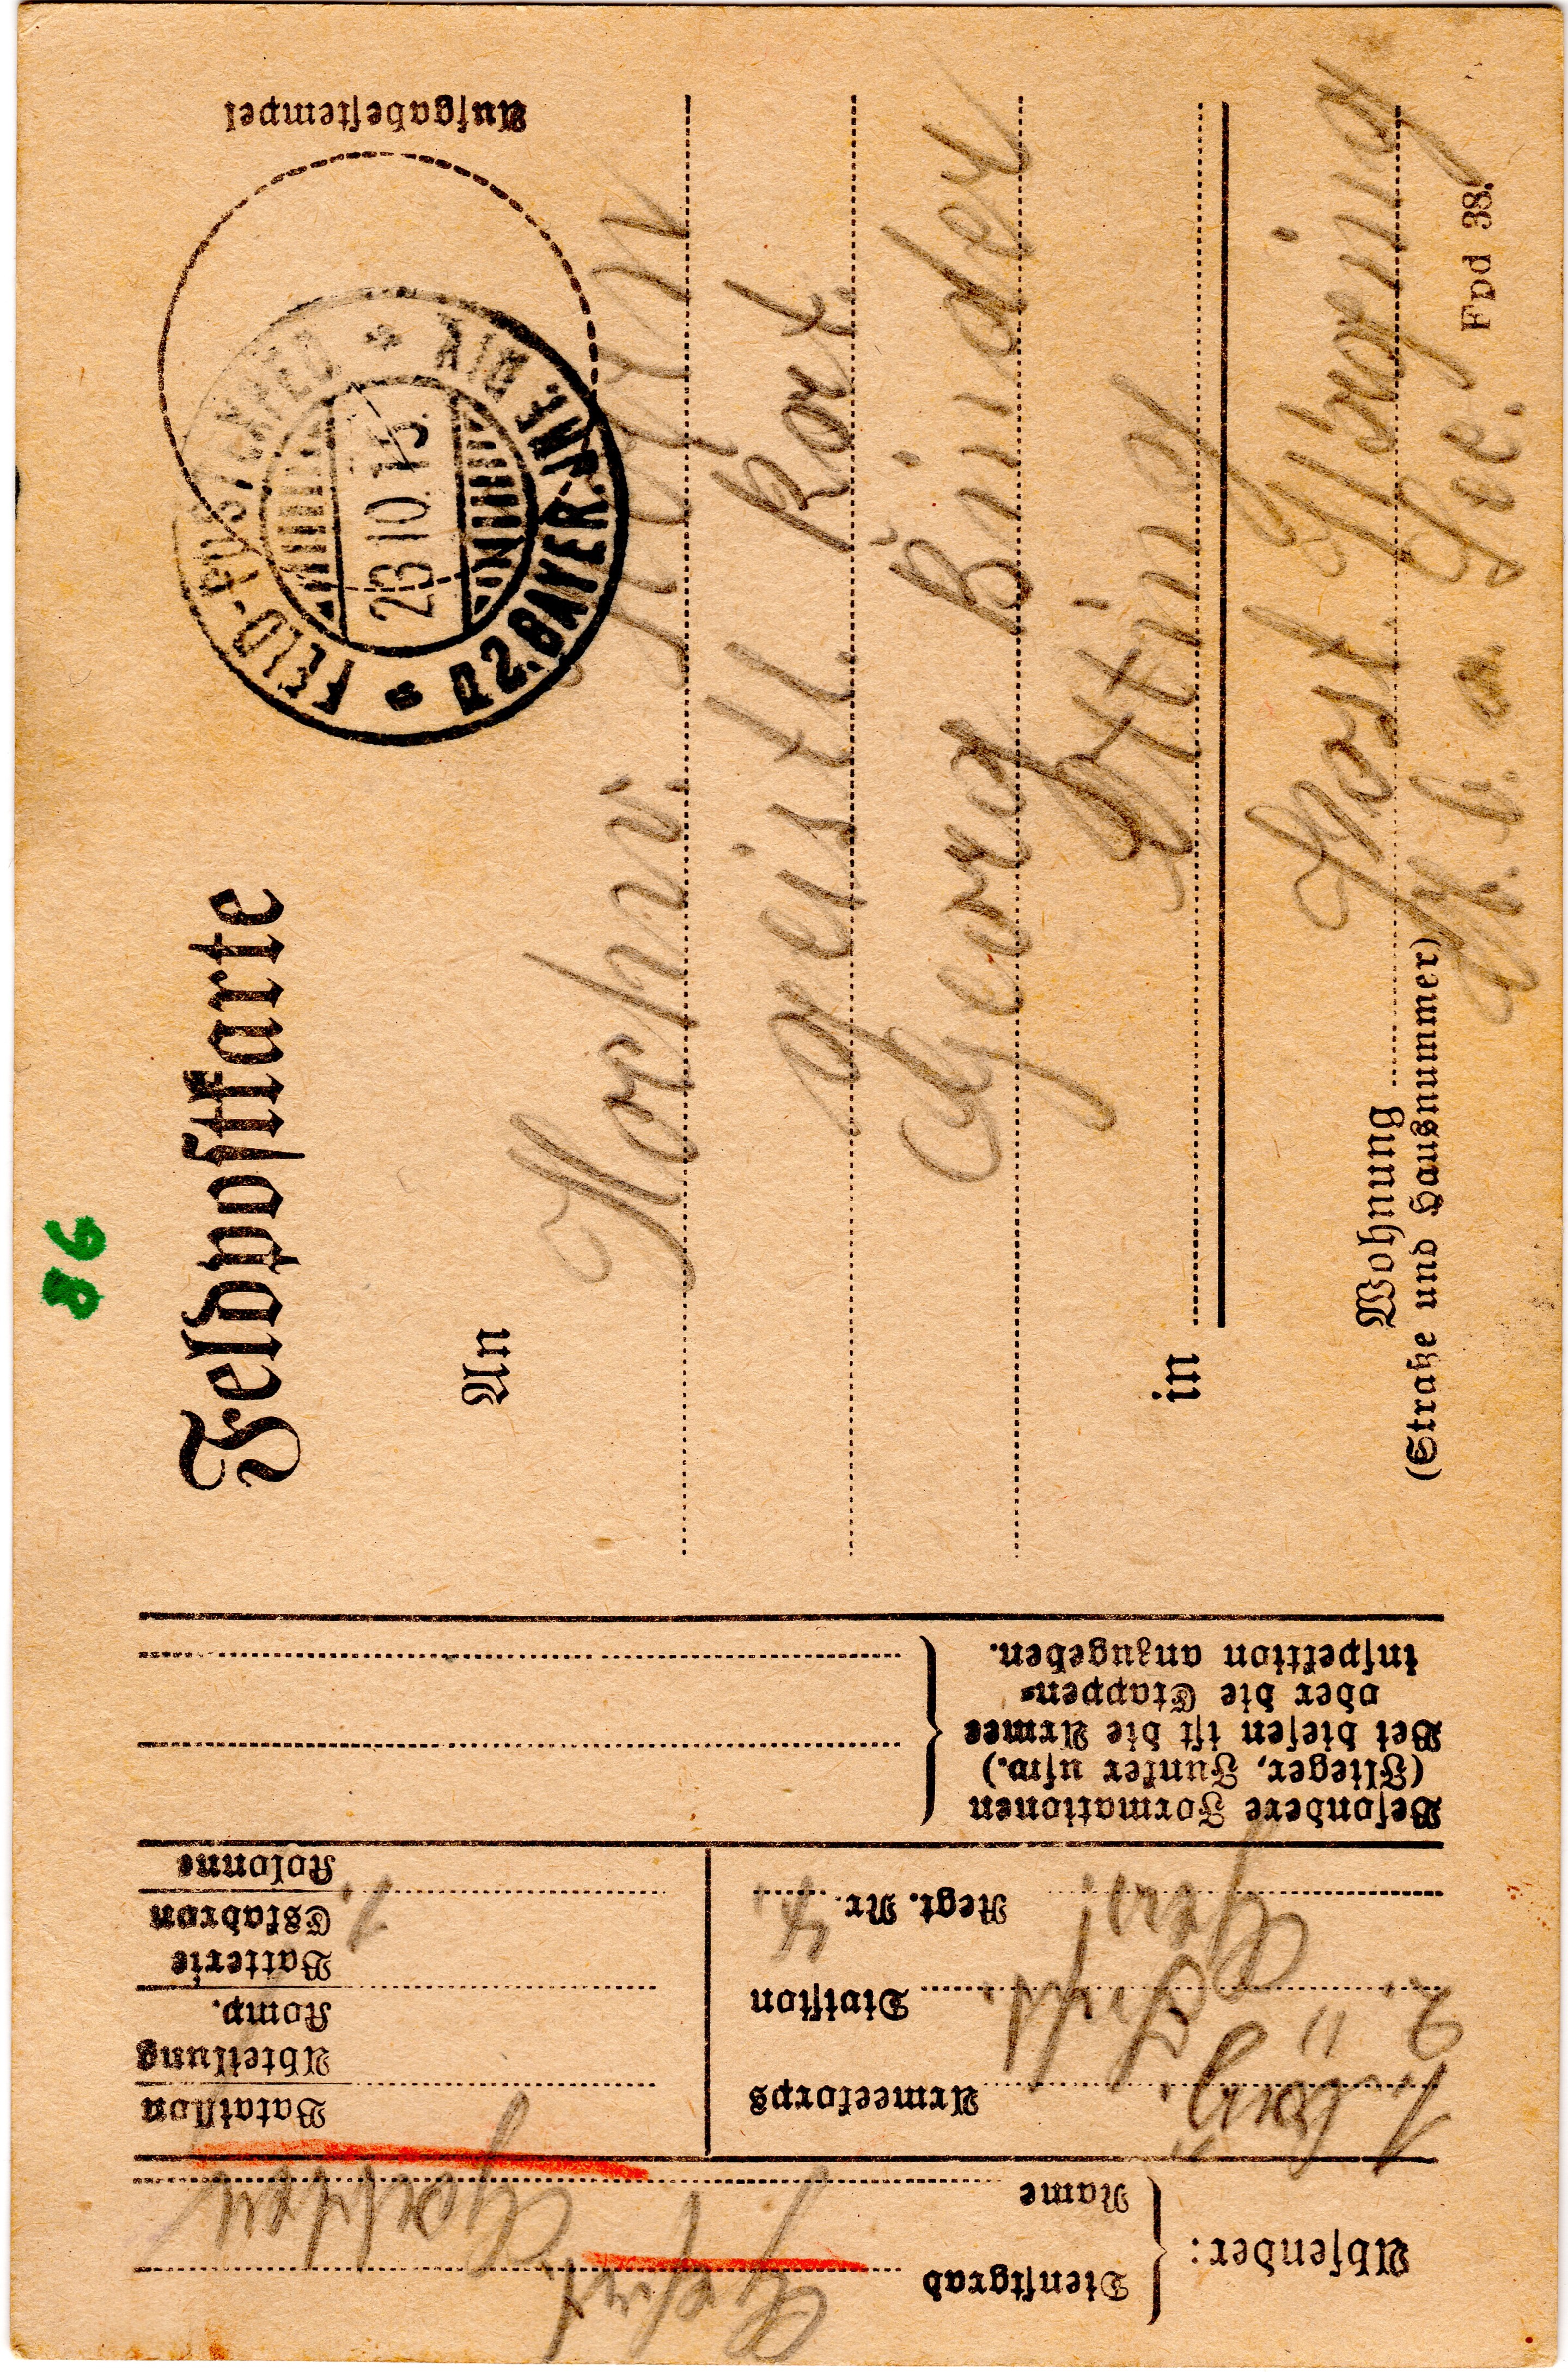 86
Feldpostkarte
Aufgabestempel
FELD-POSTEXPED
23 10. 15.
D. 2. BAYER. INF. DIV.
An
Hochw. Herrn
geistl. Rat.
Georg Bünder
in Otting
Post Waging
a. See.
Wohnung
(Straße und Hausnummer)
Fpd 38.
Absender:
Dienstgrad Gefrt.
Name
Armeekorps
1. bay.
Division
2. "
Regt. Nr. 4.
Bataillon
Abteilung
Komp.
Batterie
Eskadron 1.
Kolonne
Besondere Formationen
(Flieger, Funker usw.)
Bei diesen ist die Armee
oder die Etappen-
inspektion anzugeben.